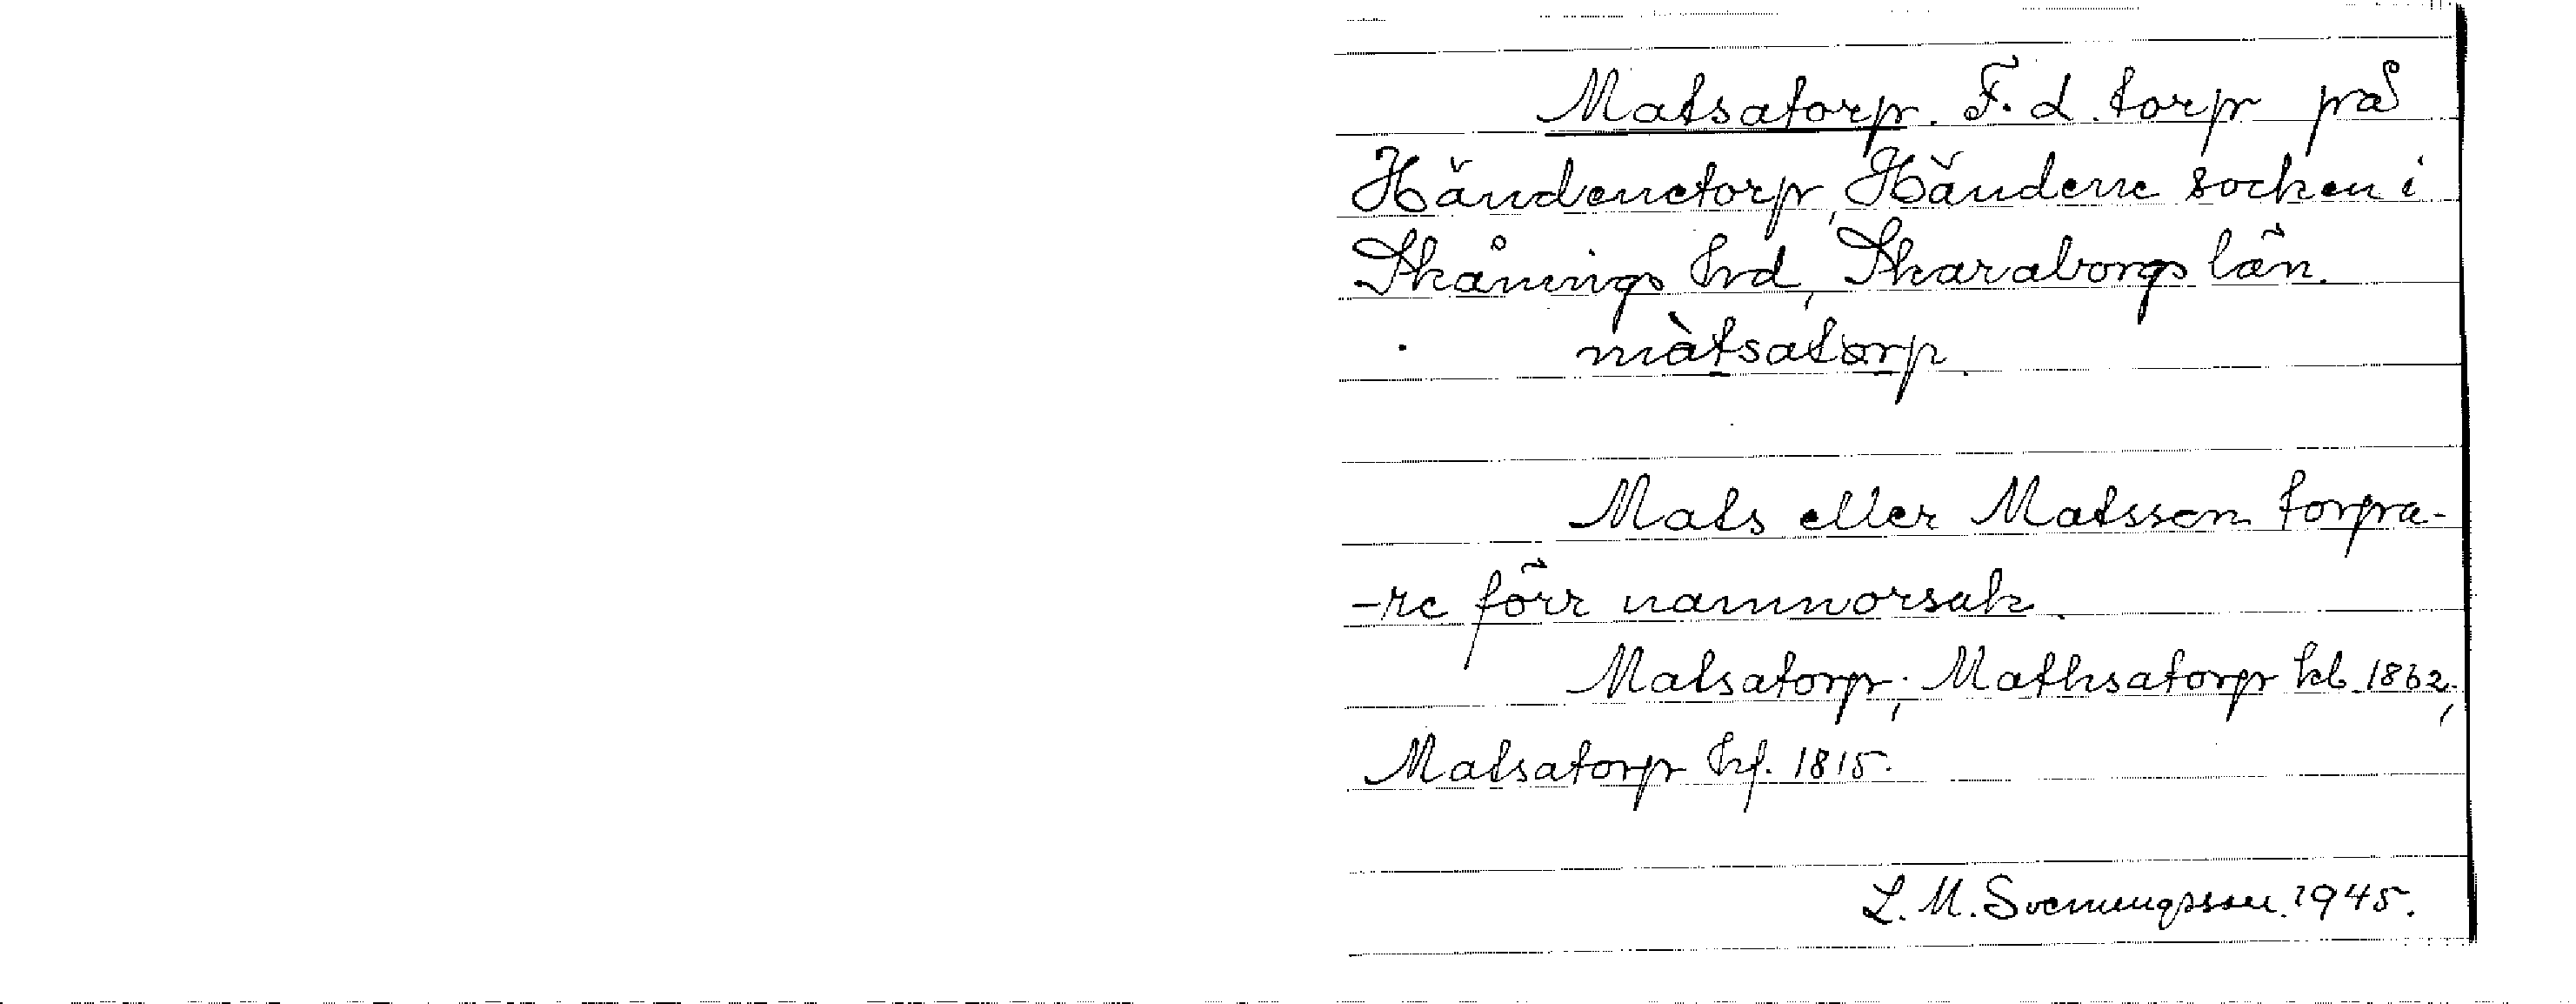 Matsatorp. F. d. torp på
Händenetorp, Händene socken i
Skånings hrd, Skaraborgs län.
màtsatorp.
Mats eller Matsson torpa-
-re förr namnorsak.
Matsatorp; Mathsatorp kb 1862,
Matsatorp hf. 1815.
L. M. Svenungsson. 1945.